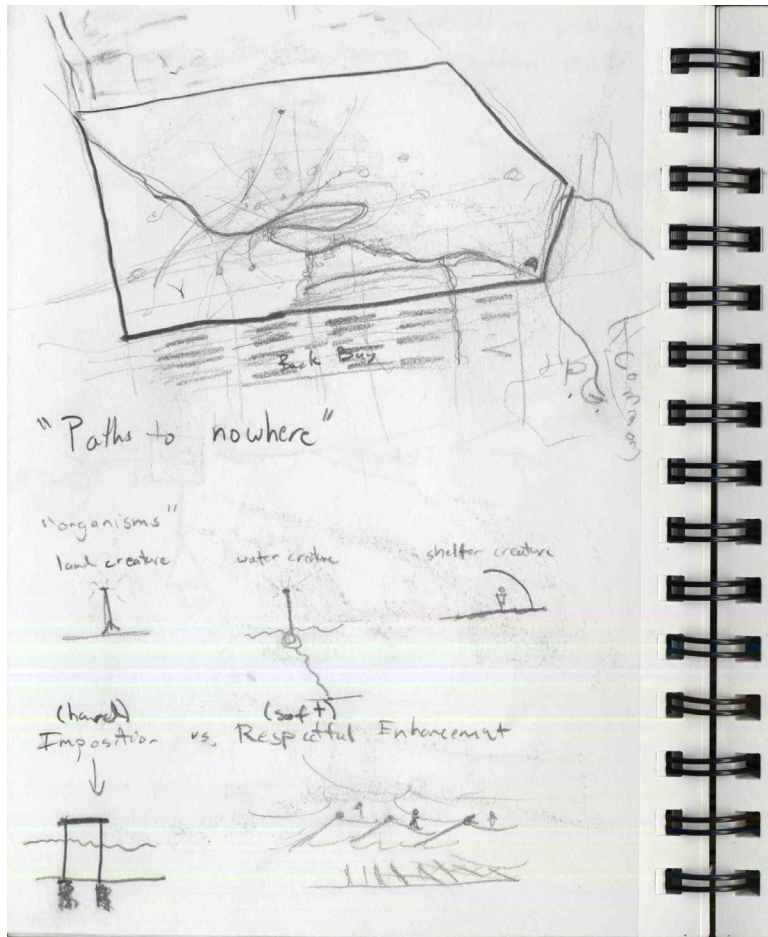 Back Bay
(Common)
"Paths to nowhere"
"organisms"
land creature
water creature
shelter creature
(hard)
(soft)
Imposition vs. Respectful Enhancement